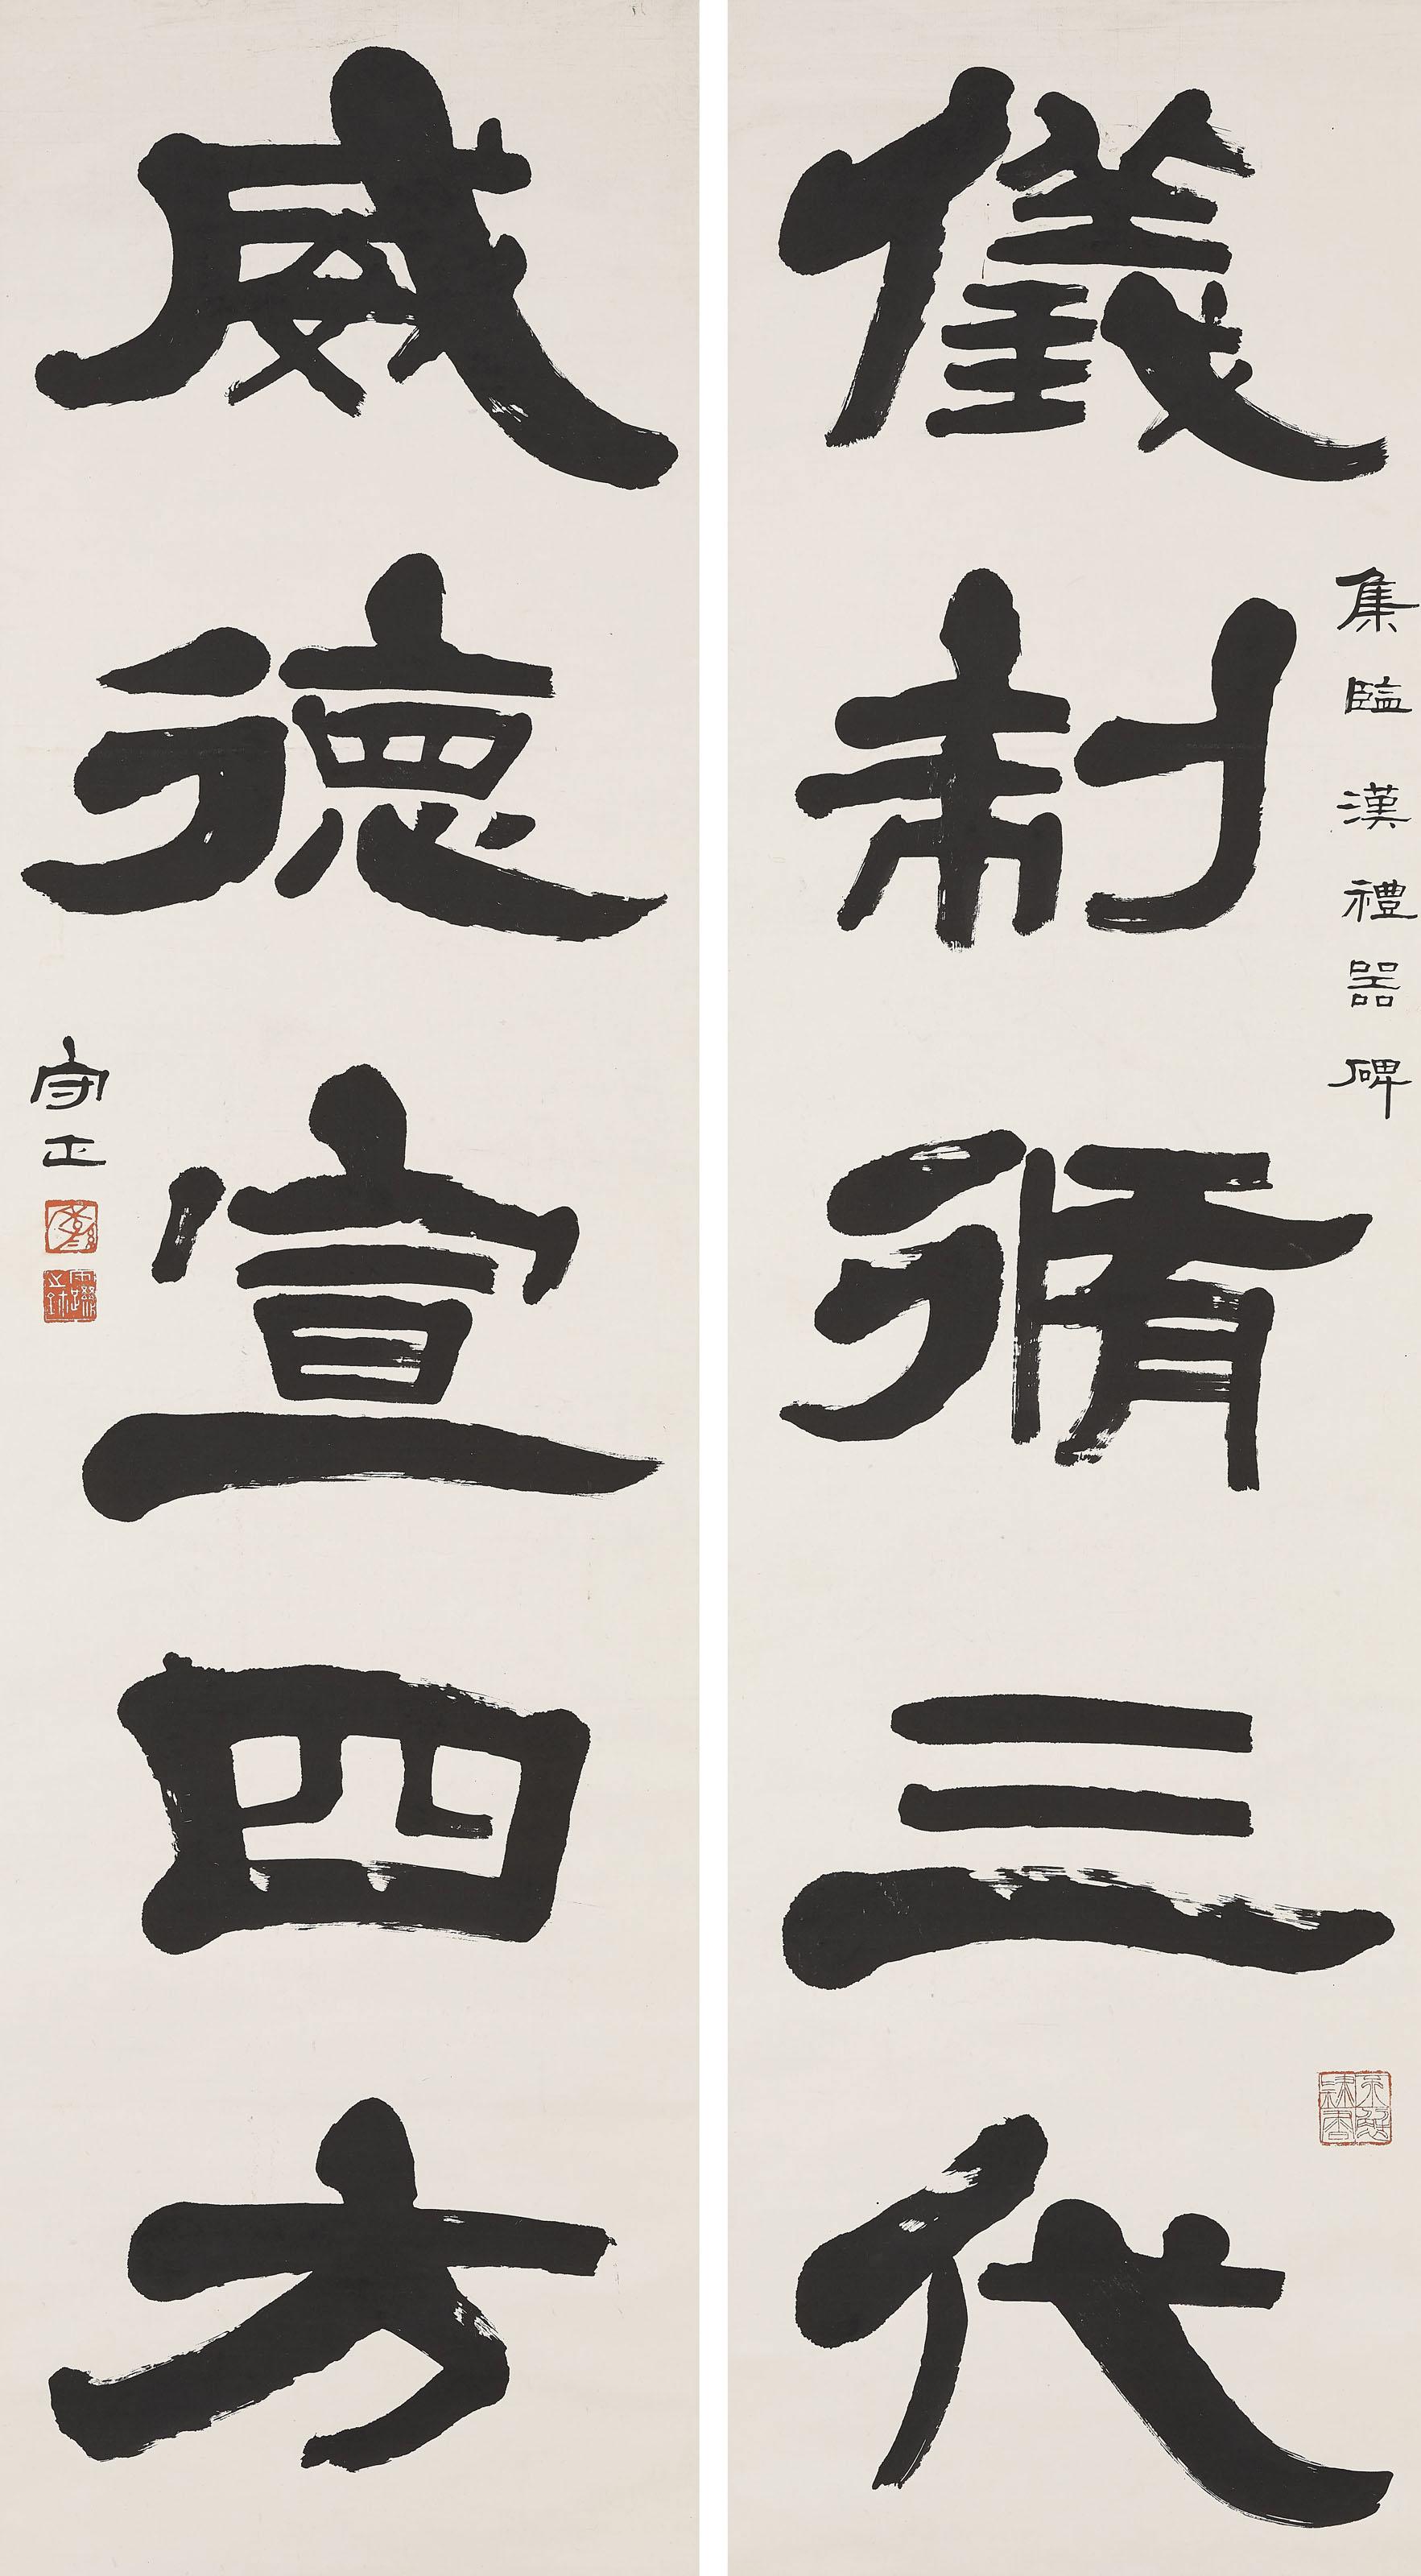 集臨漢禮器碑
儀制脩三代
威德宣四方
守正